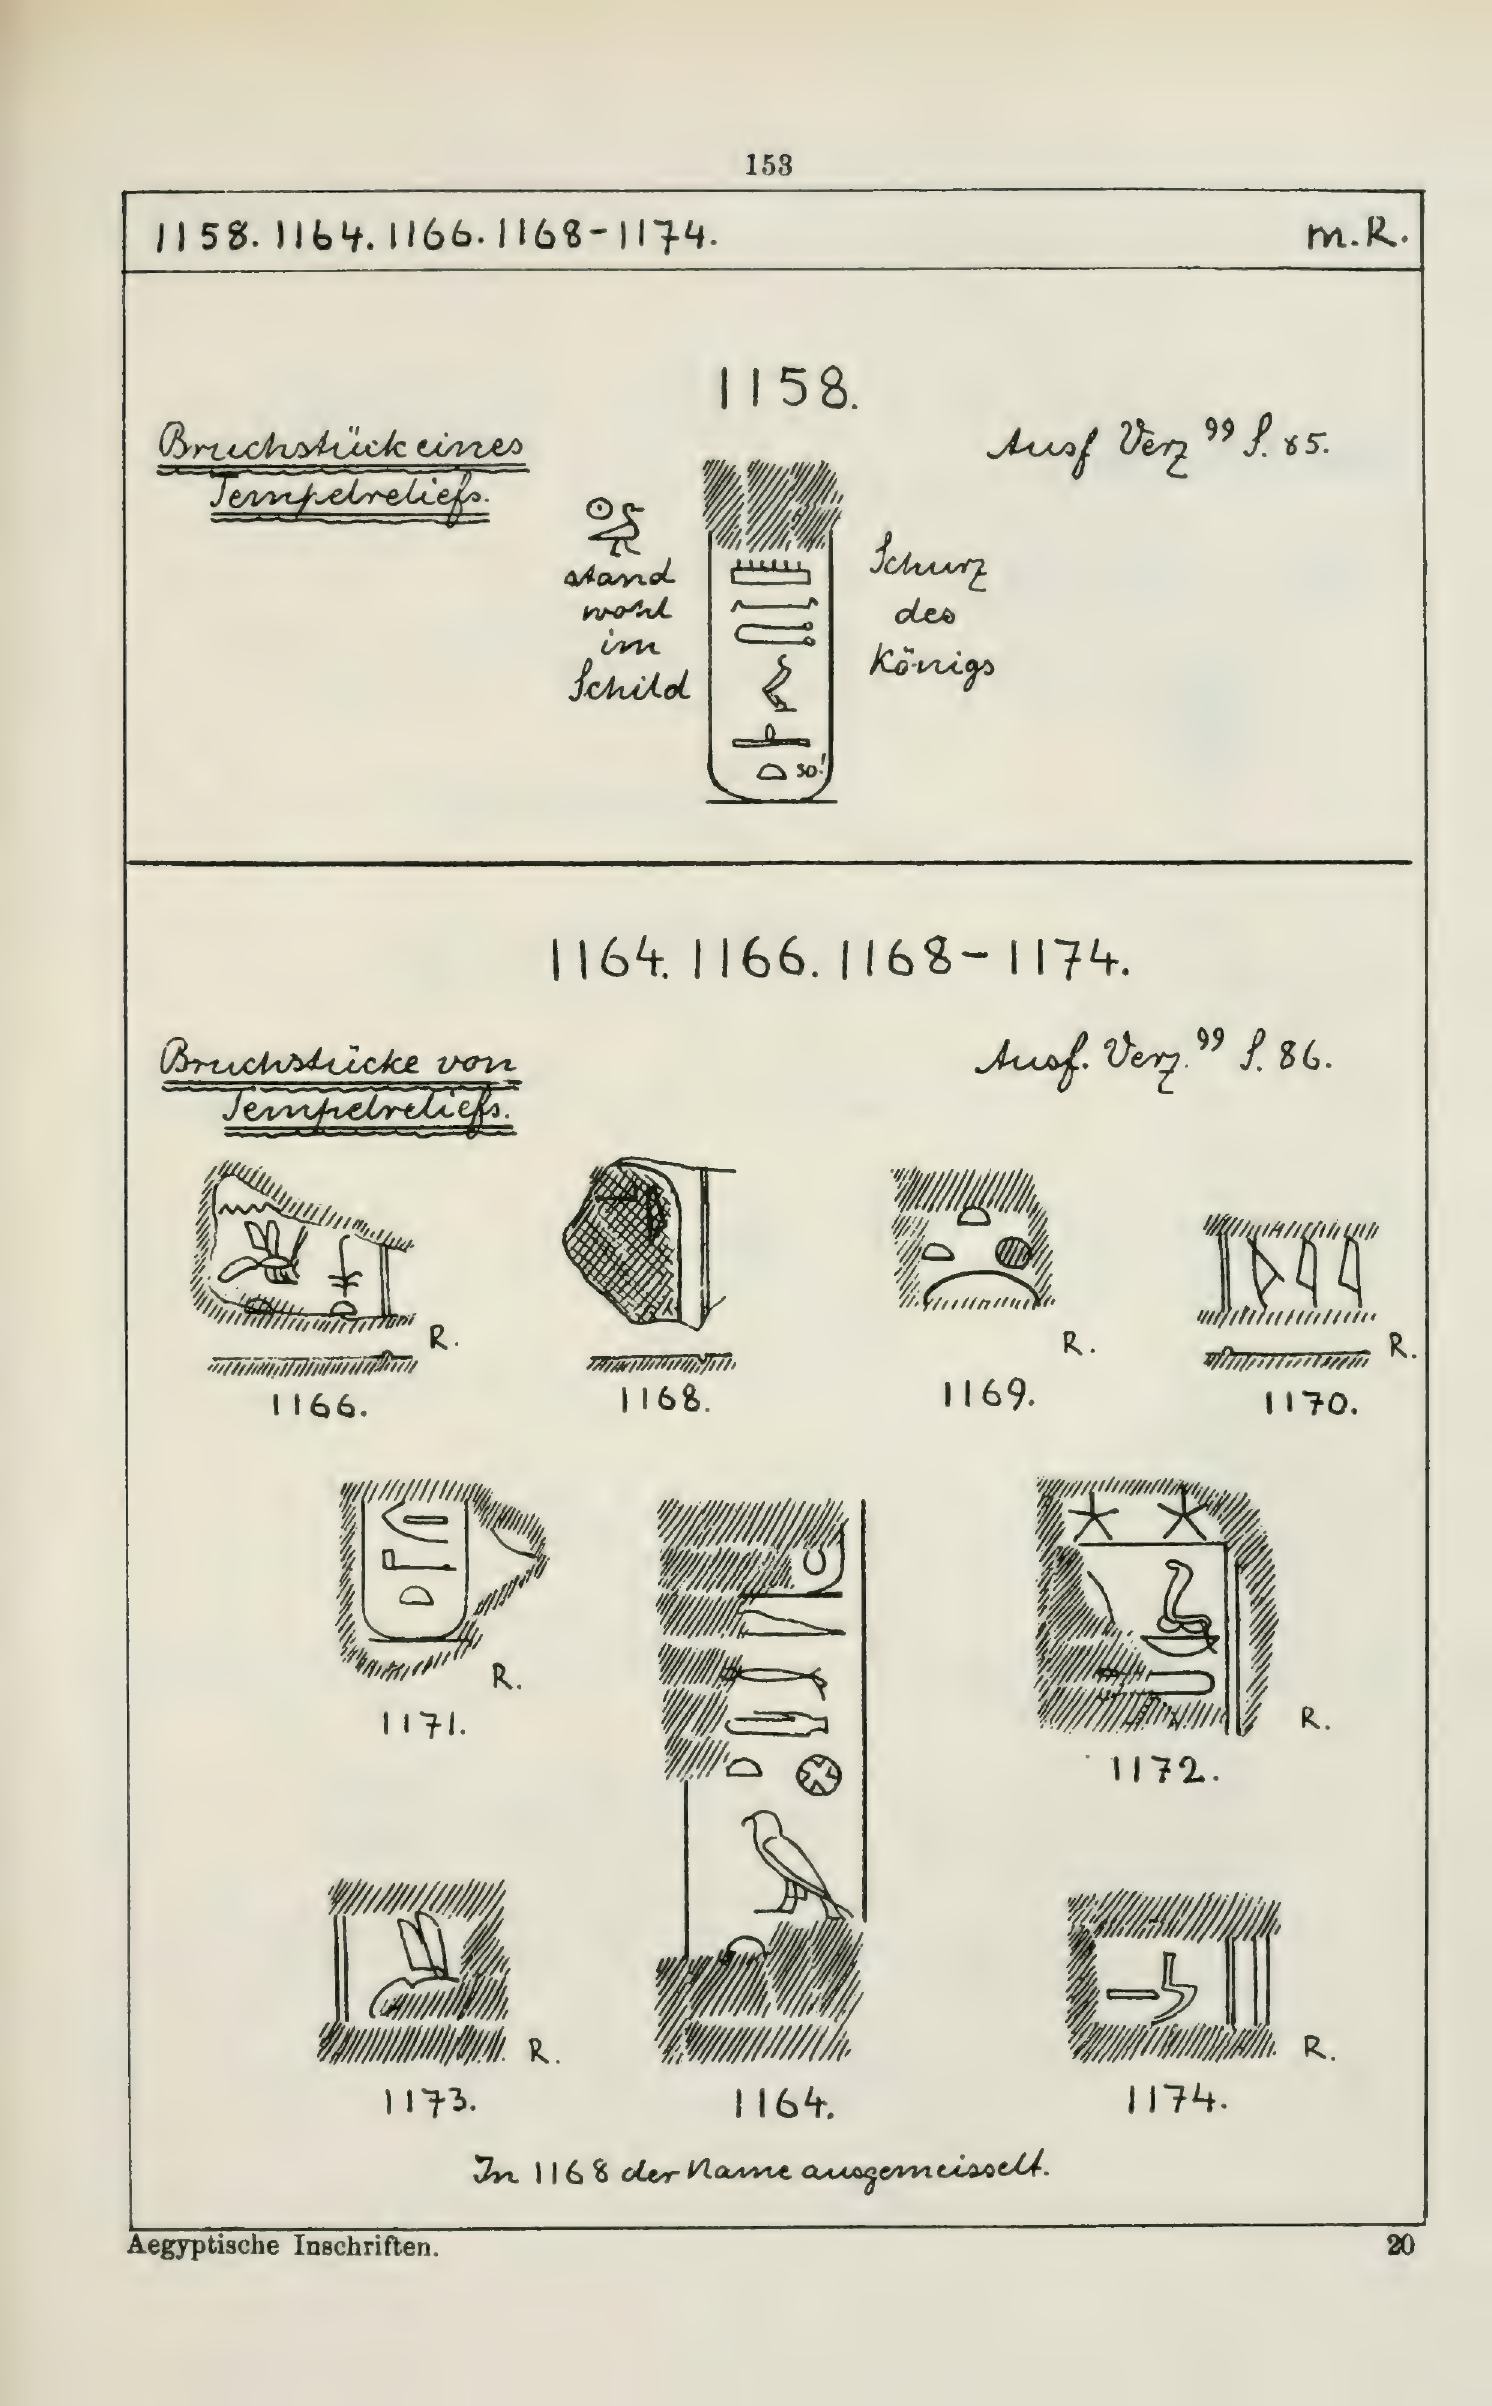 153
1158. 1164. 1166. 1168-1174.
m.R.
1158.
Bruchstück eines
Tempelreliefs.
Ausf Verz 99 S. 85.
stand
wohl
im
Schild
Schurz
des
Königs
so!
1164. 1166. 1168-1174.
Bruchstücke von
Tempelreliefs.
Ausf. Verz. 99 S. 86.
R.
1166.
1168.
R.
1169.
R.
1170.
R.
1171.
R.
1172.
R.
1173.
1164.
R.
1174.
In 1168 der Name ausgemeisselt.
Aegyptische Inschriften.
20